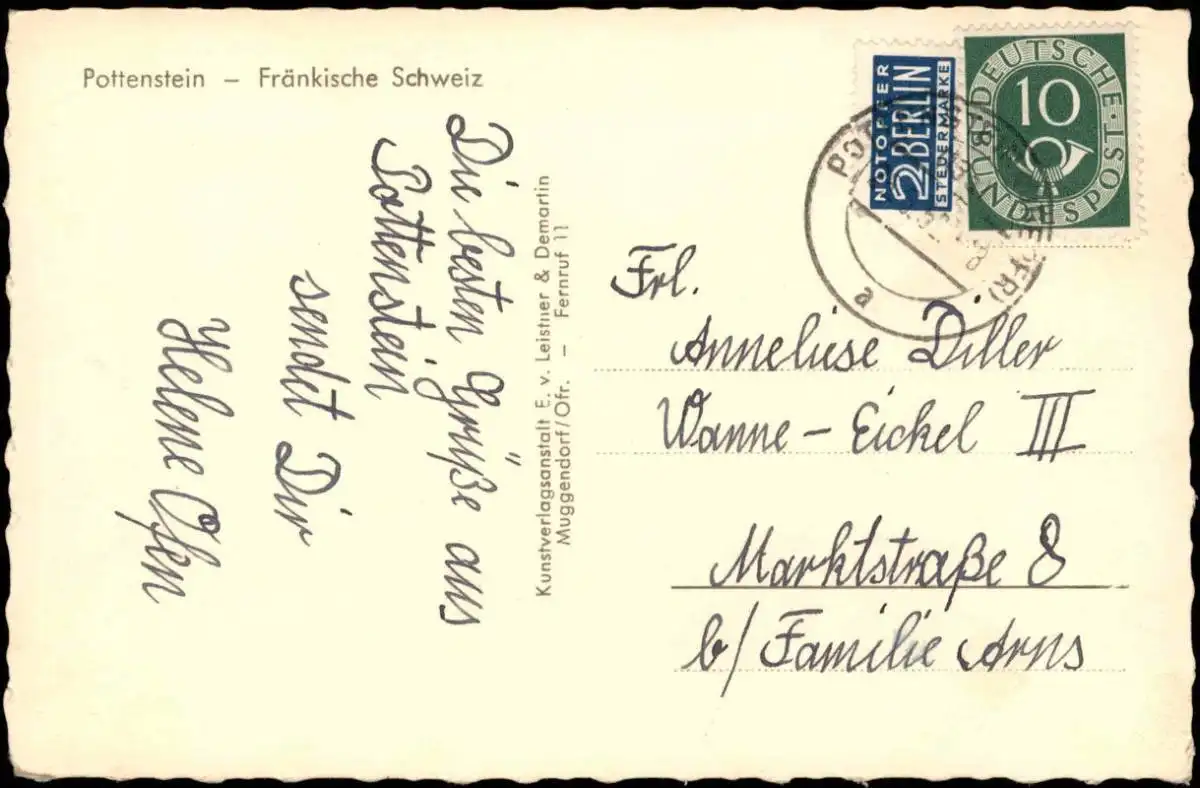 Pottenstein – Fränkische Schweiz
Die besten Grüße aus
Pottenstein
sendet Dir
Helene Ofen
Kunstverlagsanstalt E. v. Leistner & Demartin
Muggendorf/Ofr. – Fernruf 11
NOTOPFER
2 BERLIN
STEUERMARKE
DEUTSCHE
BUNDESPOST
10
a
Frl.
Anneliese Diller
Wanne-Eickel III
Marktstraße 8
b/ Familie Arns